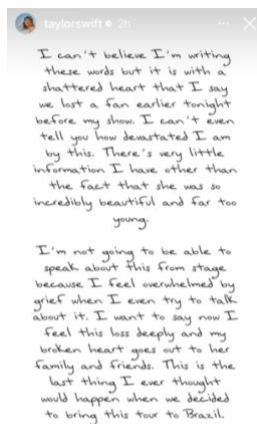 taylorswift 2h
I can't believe I'm writing
these words but it is with a
shattered heart that I say
we lost a fan earlier tonight
before my show. I can't even
tell you how devastated I am
by this. There's very little
information I have other than
the fact that she was so
incredibly beautiful and far too
young.
I'm not going to be able to
speak about this from stage
because I feel overwhelmed by
grief when I even try to talk
about it. I want to say now I
feel this loss deeply and my
broken heart goes out to her
family and friends. This is the
last thing I ever thought
would happen when we decided
to bring this tour to Brazil.